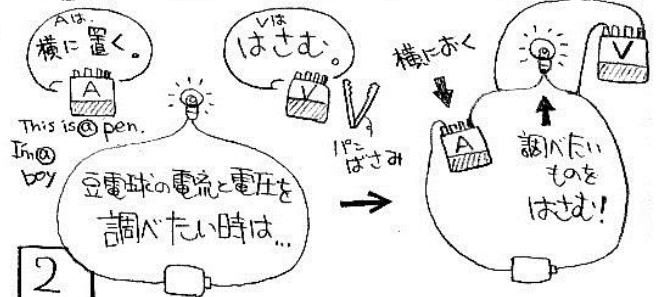 Aは.
横に置く。
A
This is ⓐ pen.
I'm ⓐ
boy
Vは
はさむ。
V
パン
ばさみ
豆電球の電流と電圧を
調べたい時は...
2
横におく
A
V
調べたい
ものを
はさむ!